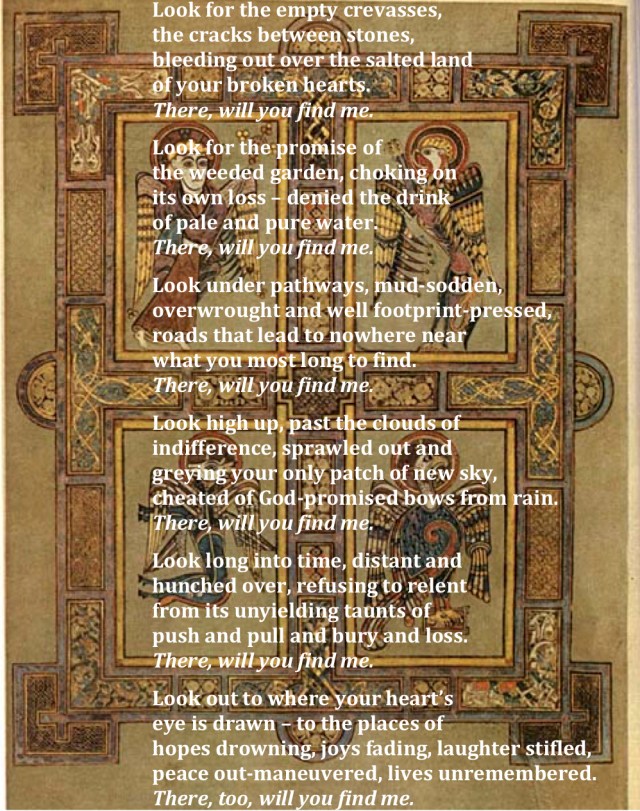 Look for the empty crevasses,
the cracks between stones,
bleeding out over the salted land
of your broken hearts.
There, will you find me.
Look for the promise of
the weeded garden, choking on
its own loss – denied the drink
of pale and pure water.
There, will you find me.
Look under pathways, mud-sodden,
overwrought and well footprint-pressed,
roads that lead to nowhere near
what you most long to find.
There, will you find me.
Look high up, past the clouds of
indifference, sprawled out and
greying your only patch of new sky,
cheated of God-promised bows from rain.
There, will you find me.
Look long into time, distant and
hunched over, refusing to relent
from its unyielding taunts of
push and pull and bury and loss.
There, will you find me.
Look out to where your heart’s
eye is drawn – to the places of
hopes drowning, joys fading, laughter stifled,
peace out-maneuvered, lives unremembered.
There, too, will you find me.